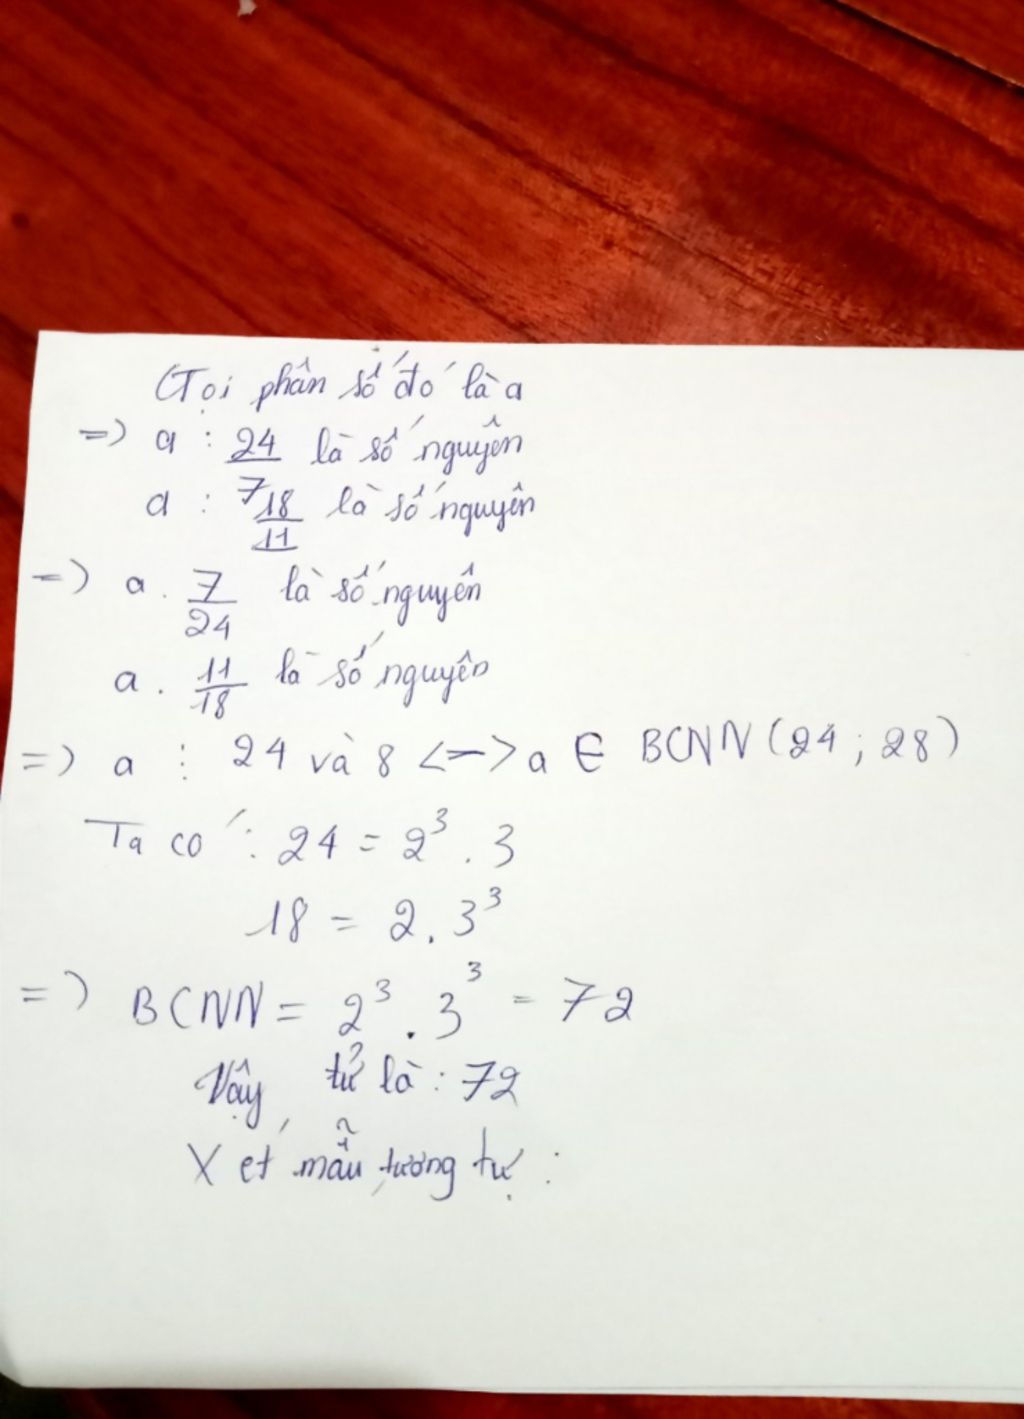 Gọi phân số đó là a
=) a : 24/7 là số nguyên
a : 18/11 là số nguyên
=) a . 7/24 là số nguyên
a . 11/18 là số nguyên
=) a ⋮ 24 và 8 <=> a ∈ BCNN (24 ; 28)
Ta có : 24 = 2³ . 3
18 = 2 . 3³
=) BCNN = 2³ . 3³ = 72
Vậy tử là : 72
Xét mẫu tương tự :